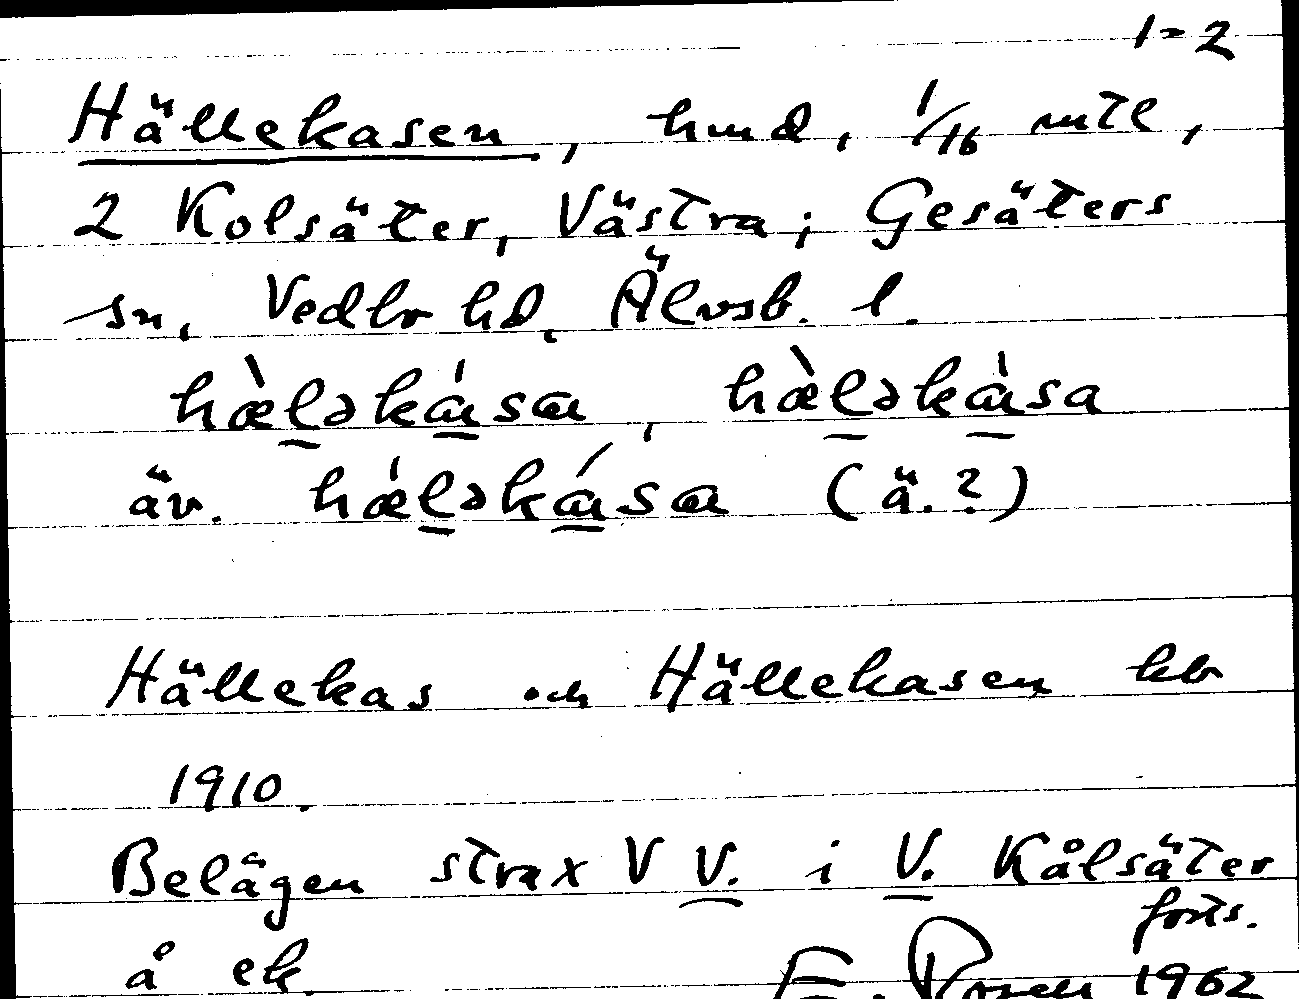 1-2
Hällekasen, hmd, 1/16 mtl,
2 Kolsäter, Västra; Gesäters
sn, Vedbo hd. Älvsb. l.
hæ̀ləkása, hæ̀ləkása
äv. hǽləkása (ä.?)
Hällekas och Hällekasen kb
1910.
Belägen strax V V. i V. Kålsäter
forts.
å ek.
E. Rosen 1962